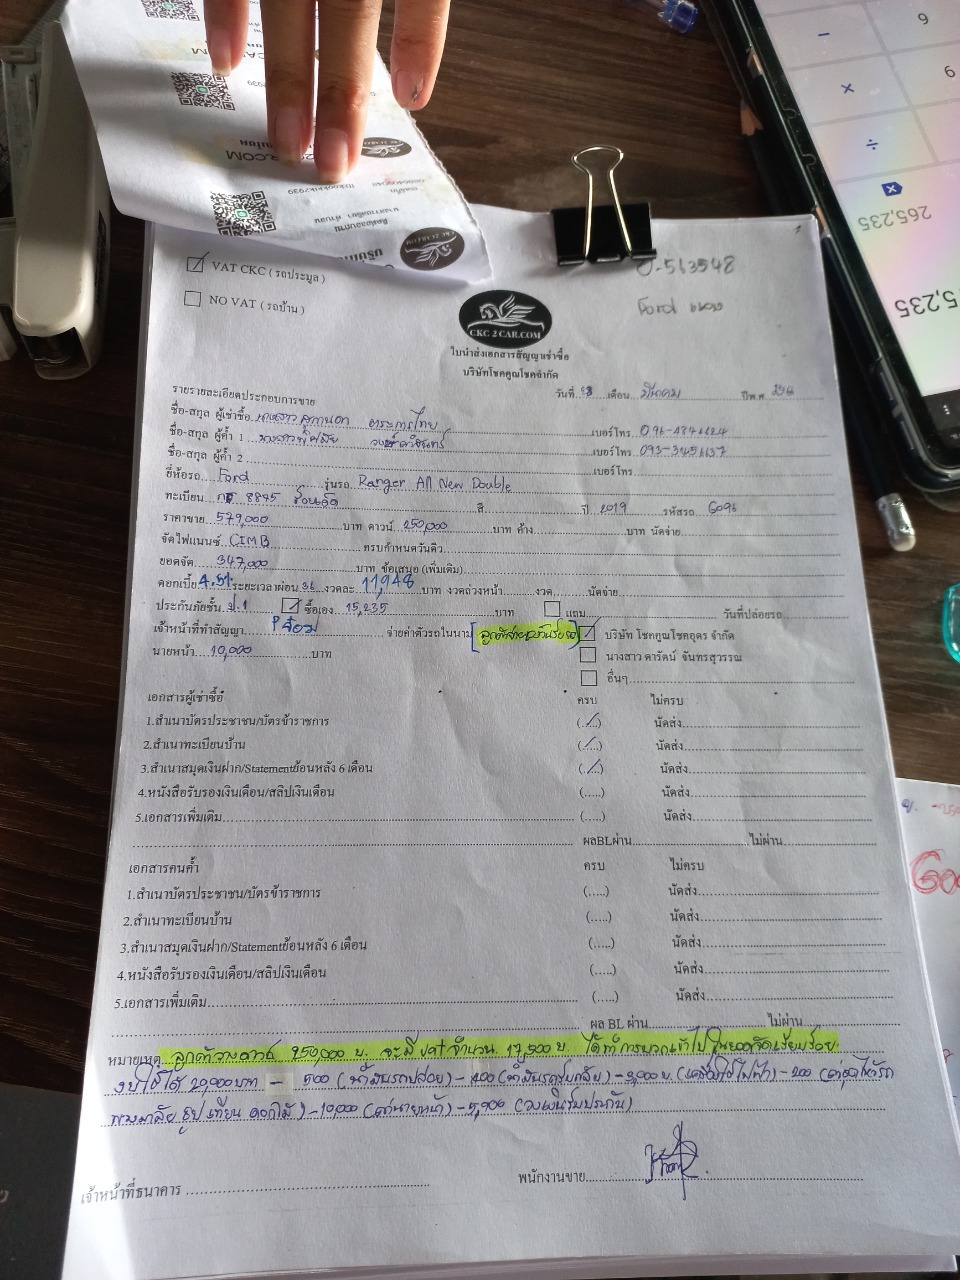 0-513548
Ford
VAT CKC ( รถประมูล )
NO VAT ( รถบ้าน )
CKC 2 CAR.COM
ใบนำส่งเอกสารสัญญาเช่าซื้อ
บริษัทโชคคูณโชคจำกัด
วันที่ เดือน มีนาคม ปีพ.ศ.
รายรายละเอียดประกอบการขาย
ชื่อ-สกุล ผู้เช่าซื้อ นางสาว เบอร์โทร.
ชื่อ-สกุล ผู้ค้ำ 1 นางสาว เบอร์โทร. 093-3451637
ชื่อ-สกุล ผู้ค้ำ 2 เบอร์โทร
ยี่ห้อรถ Ford รุ่นรถ Ranger All New Double
ทะเบียน 8845 ร้อยเอ็ด สี ปี 2019 รหัสรถ G096
ราคาขาย 579,000 บาท ดาวน์ 250,000 บาท ค้าง บาท นัดจ่าย
จัดไฟแนนซ์ CIMB ครบกำหนดวันคิว
ยอดจัด 347,000 บาท ข้อเสนอ (เพิ่มเติม)
ดอกเบี้ย 4.5% ระยะเวลาผ่อน 36 งวดละ 11,948 บาท งวดล่วงหน้า งวด นัดจ่าย
ประกันภัยชั้น ป.1 ซื้อเอง 15,235 บาท แถม วันที่ปล่อยรถ
เจ้าหน้าที่ทำสัญญา จ่ายค่าตัวรถในนาม บริษัท โชคคูณโชคอุดร จำกัด
นายหน้า 10,000 บาท นางสาว ดารัตน์ จันทรสุวรรณ
อื่นๆ
เอกสารผู้เช่าซื้อ ครบ ไม่ครบ
1.สำเนาบัตรประชาชน/บัตรข้าราชการ (/) นัดส่ง
2.สำเนาทะเบียนบ้าน (/) นัดส่ง
3.สำเนาสมุดเงินฝาก/Statementย้อนหลัง 6 เดือน (/) นัดส่ง
4.หนังสือรับรองเงินเดือน/สลิปเงินเดือน (.....) นัดส่ง
5.เอกสารเพิ่มเติม (.....) นัดส่ง
ผลBLผ่าน ไม่ผ่าน
เอกสารคนค้ำ ครบ ไม่ครบ
1.สำเนาบัตรประชาชน/บัตรข้าราชการ (.....) นัดส่ง
2.สำเนาทะเบียนบ้าน (.....) นัดส่ง
3.สำเนาสมุดเงินฝาก/Statementย้อนหลัง 6 เดือน (.....) นัดส่ง
4.หนังสือรับรองเงินเดือน/สลิปเงินเดือน (.....) นัดส่ง
5.เอกสารเพิ่มเติม (.....) นัดส่ง
ผล BL ผ่าน ไม่ผ่าน
หมายเหตุ ลูกค้าวางดาวน์ 250,000 บ. จะมี vat จำนวน 17,500 บ. ได้ทำการบวกเข้าไปในยอดจัดเรียบร้อย
งบใช้ได้ 20,000 บาท - 500 (น้ำมันรถปล่อย) - 400 - 3,000 บ. - 200
พวงมาลัย ธูป เทียน ดอกไม้) - 10,000 (ค่านายหน้า) - 5,900
เจ้าหน้าที่ธนาคาร พนักงานขาย
265,235